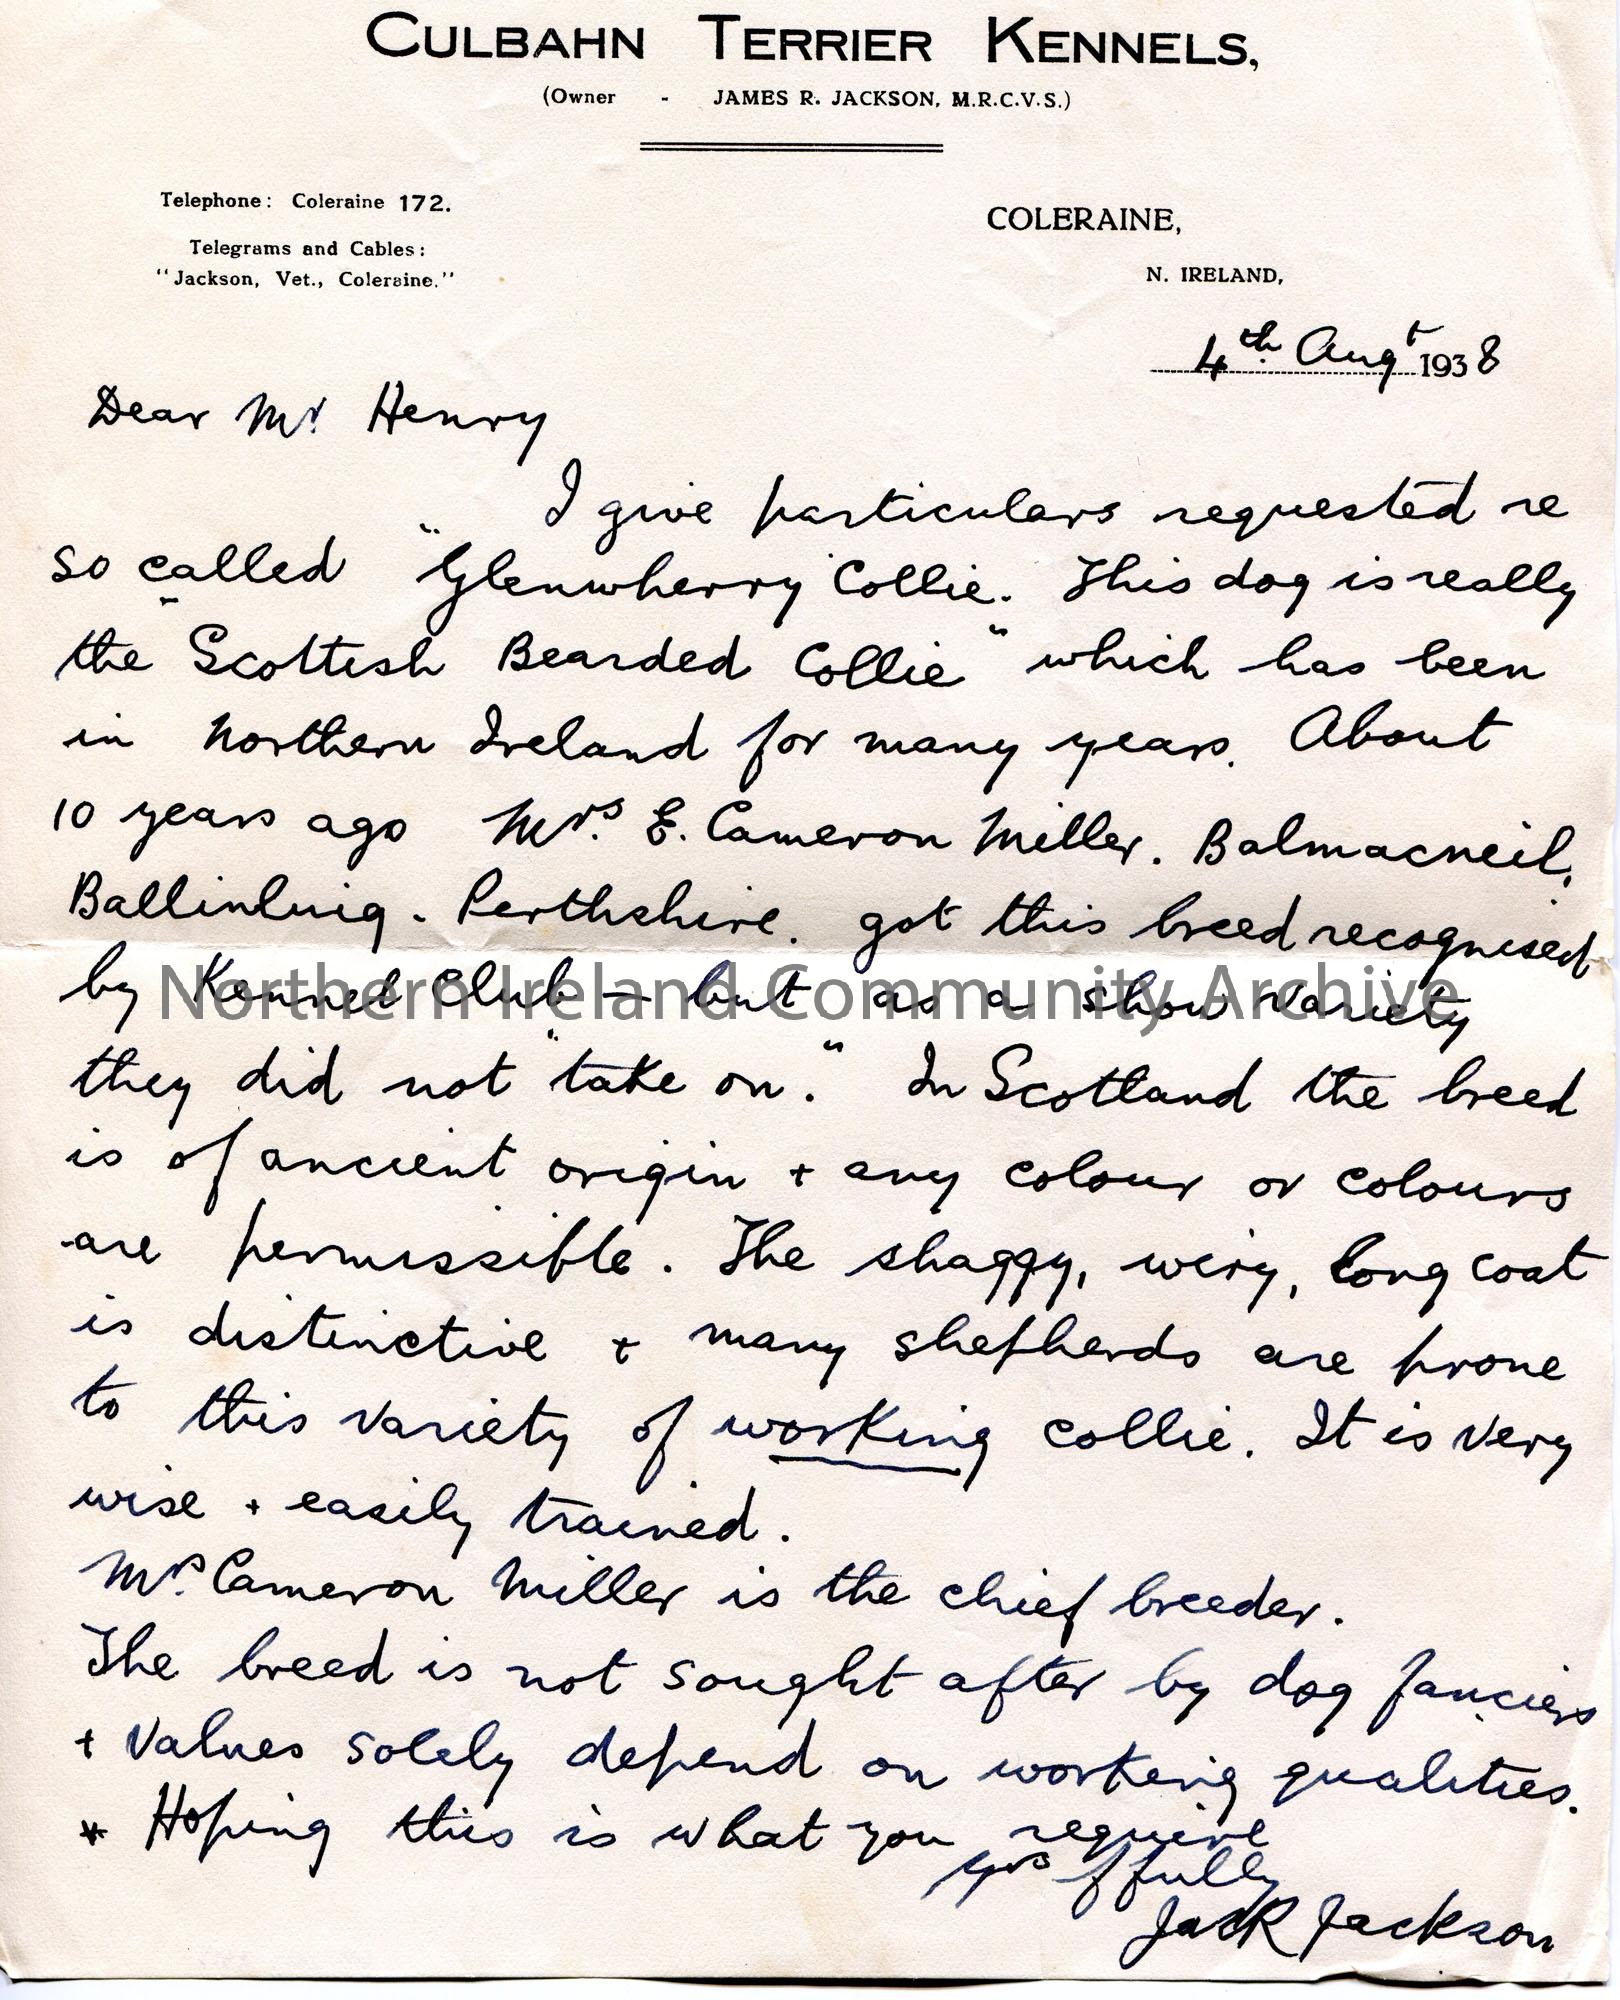 CULBAHN TERRIER KENNELS,
(Owner - JAMES R. JACKSON, M.R.C.V.S.)
Telephone: Coleraine 172.
Telegrams and Cables:
"Jackson, Vet., Coleraine."
COLERAINE,
N. IRELAND,
4th Augt 1938
Dear Mr Henry
I give particulars requested re
so called "Glenwherry Collie. This dog is really
the Scottish Bearded Collie" which has been
in Northern Ireland for many years. About
10 years ago Mrs. E. Cameron Miller. Balmacneil,
Ballinluig. Perthshire. got this breed recognised
by Kennel Club – but as a show variety
they did not "take on." In Scotland the breed
is of ancient origin + any colour or colours
are permissible. The shaggy, wiry, long coat
is distinctive + many shepherds are prone
to this variety of working collie. It is very
wise + easily trained.
Mrs. Cameron Miller is the chief breeder.
The breed is not sought after by dog fanciers
+ values solely depend on working qualities.
* Hoping this is what you require
yrs ffully
Jack Jackson
Northern Ireland Community Archive